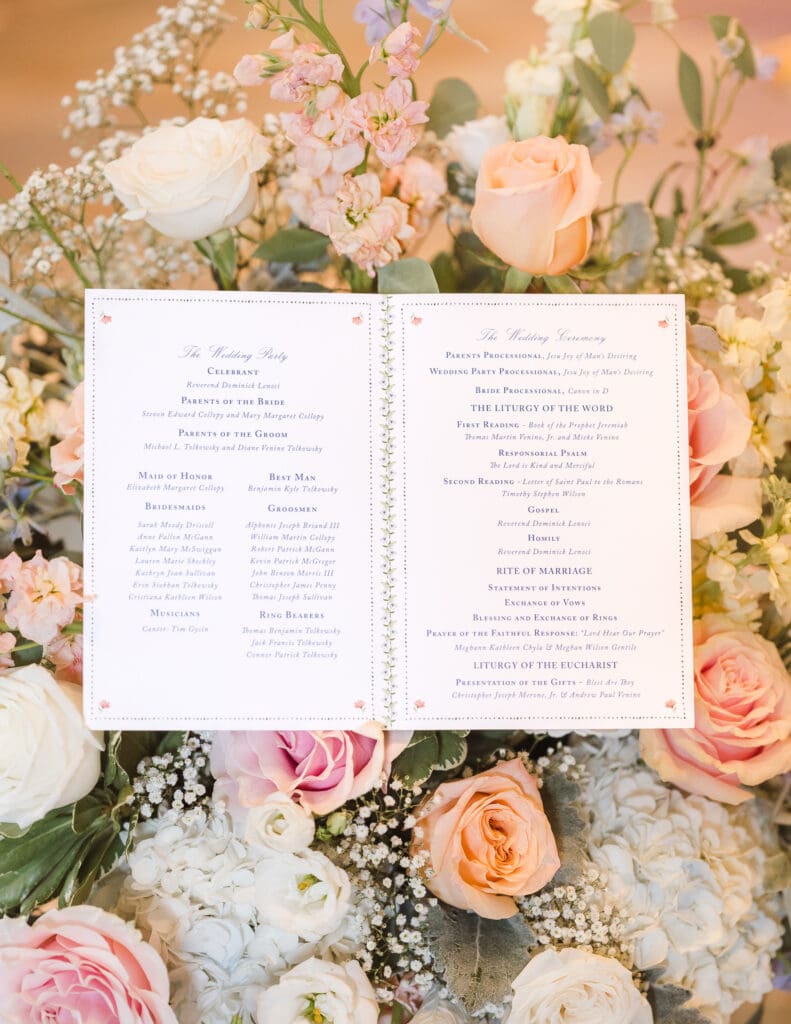 The Wedding Party
Celebrant
Reverend Dominick Lenoci
Parents of the Bride
Steven Edward Collopy and Mary Margaret Collopy
Parents of the Groom
Michael L. Tolkowsky and Diane Venine Tolkowsky
Maid of Honor
Elizabeth Margaret Collopy
Bridesmaids
Sarah Moody Driscoll
Anne Fallon McGann
Kaitlyn Mary McSwiggan
Lauren Marie Shockley
Kathryn Jean Sullivan
Erin Siobhan Tolkowsky
Cristiana Kathleen Wilson
Musicians
Cantor: Tim Gysin
Best Man
Benjamin Kyle Tolkowsky
Groosmen
Alphonse Joseph Briand III
William Martin Collopy
Robert Patrick McGann
Kevin Patrick McGregor
John Benson Morris III
Christopher James Penny
Thomas Joseph Sullivan
Ring Bearers
Thomas Benjamin Tolkowsky
Jack Francis Tolkowsky
Connor Patrick Tolkowsky
The Wedding Ceremony
Parents Processional, Jesu Joy of Man's Desiring
Wedding Party Processional, Jesu Joy of Man's Desiring
Bride Processional, Canon in D
THE LITURGY OF THE WORD
First Reading - Book of the Prophet Jeremiah
Thomas Martin Venino, Jr. and Mieke Venino
Responsorial Psalm
The Lord is Kind and Merciful
Second Reading - Letter of Saint Paul to the Romans
Timothy Stephen Wilson
Gospel
Reverend Dominick Lenoci
Homily
Reverend Dominick Lenoci
RITE OF MARRIAGE
Statement of Intentions
Exchange of Vows
Blessing and Exchange of Rings
Prayer of the Faithful Response: "Lord Hear Our Prayer"
Meghann Kathleen Chyla & Meghan Wilson Gentile
LITURGY OF THE EUCHARIST
Presentation of the Gifts - Blest Are They
Christopher Joseph Merone, Jr. & Andrew Paul Venino